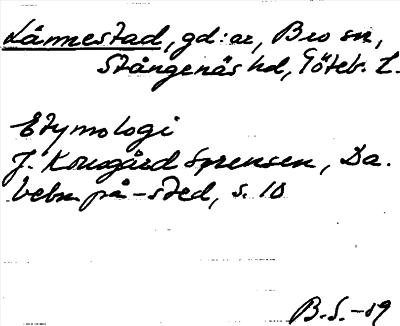 Lännestad, gd:ar, Bro sn,
Stångenäs hd, Göteb. L.
Etymologi
J. Kousgård Sørensen, Da.
bebn. på -sted, s. 10
B.S. -89